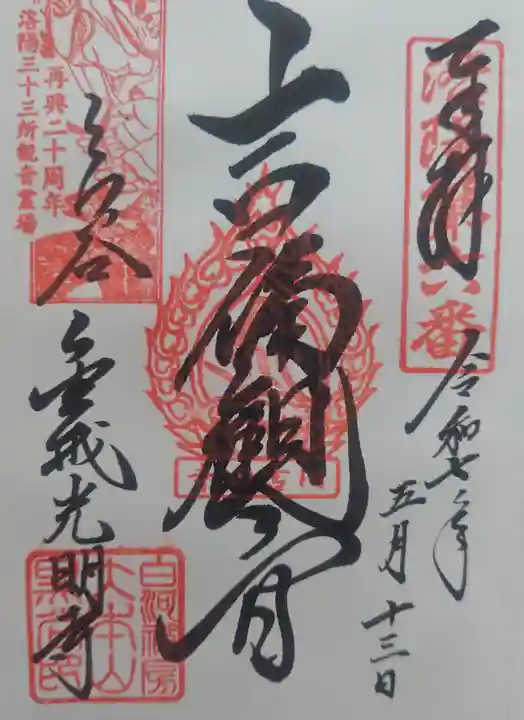 奉拝
洛陽第六番
令和七年
五月十三日
吉備観音
再興二十周年
洛陽三十三所観音霊場
くろ谷
金戒光明寺
白河禅房
大本山